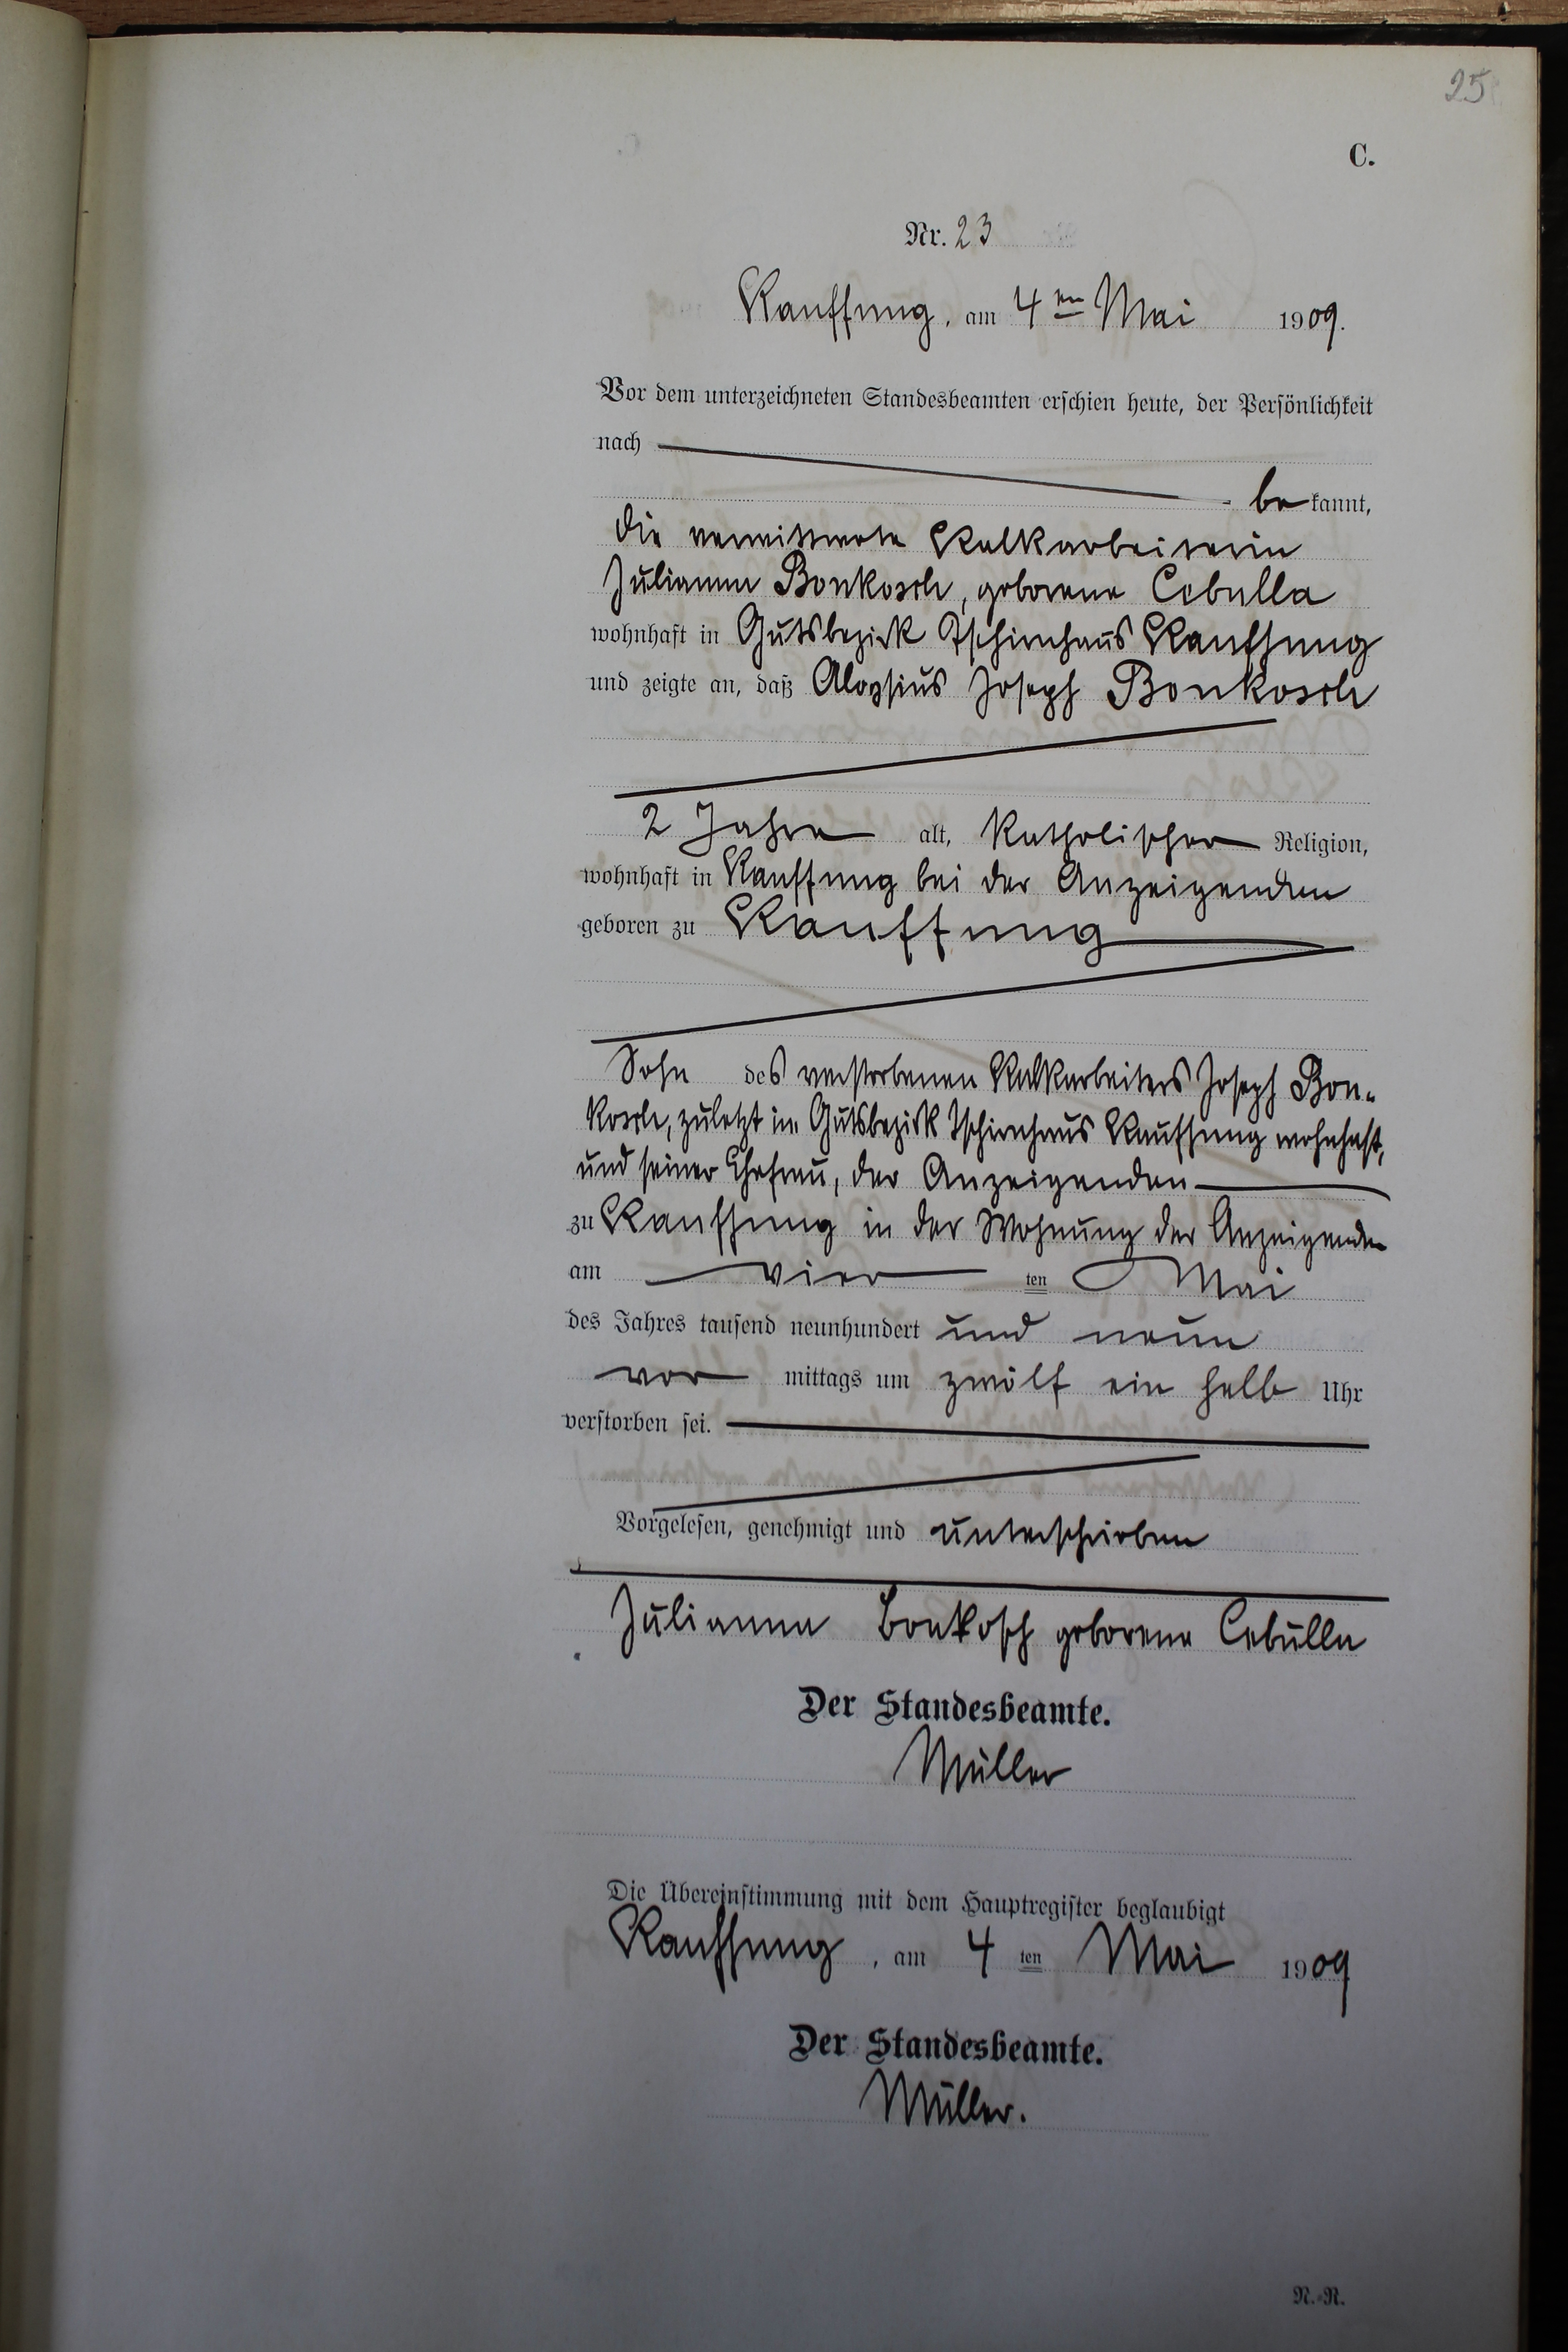 25
C.
Nr. 23
Kauffung, am 4ten Mai 1909.
Vor dem unterzeichneten Standesbeamten erschien heute, der Persönlichkeit
nach
bekannt,
die verwittwete Kalkarbeiterin
Julianna Bonkosch, geborene Cebulla
wohnhaft in Gutsbezirk Tschirnhaus Kauffung
und zeigte an, daß Aloysius Joseph Bonkosch
2 Jahre alt, katholischer Religion,
wohnhaft in Kauffung bei der Anzeigenden
geboren zu Kauffung
Sohn des verstorbenen Kalkarbeiters Joseph Bon-
kosch, zuletzt im Gutsbezirk Tschirnhaus Kauffung wohnhaft,
und seiner Ehefrau, der Anzeigenden
zu Kauffung in der Wohnung der Anzeigenden
am vier ten Mai
des Jahres tausend neunhundert und neun
vor mittags um zwölf ein halb Uhr
verstorben sei.
Vorgelesen, genehmigt und unterschrieben
Julianna Bonkosch geborene Cebulla
Der Standesbeamte.
Müller
Die Übereinstimmung mit dem Hauptregister beglaubigt
Kauffung, am 4 ten Mai 1909
Der Standesbeamte.
Müller.
N.-R.